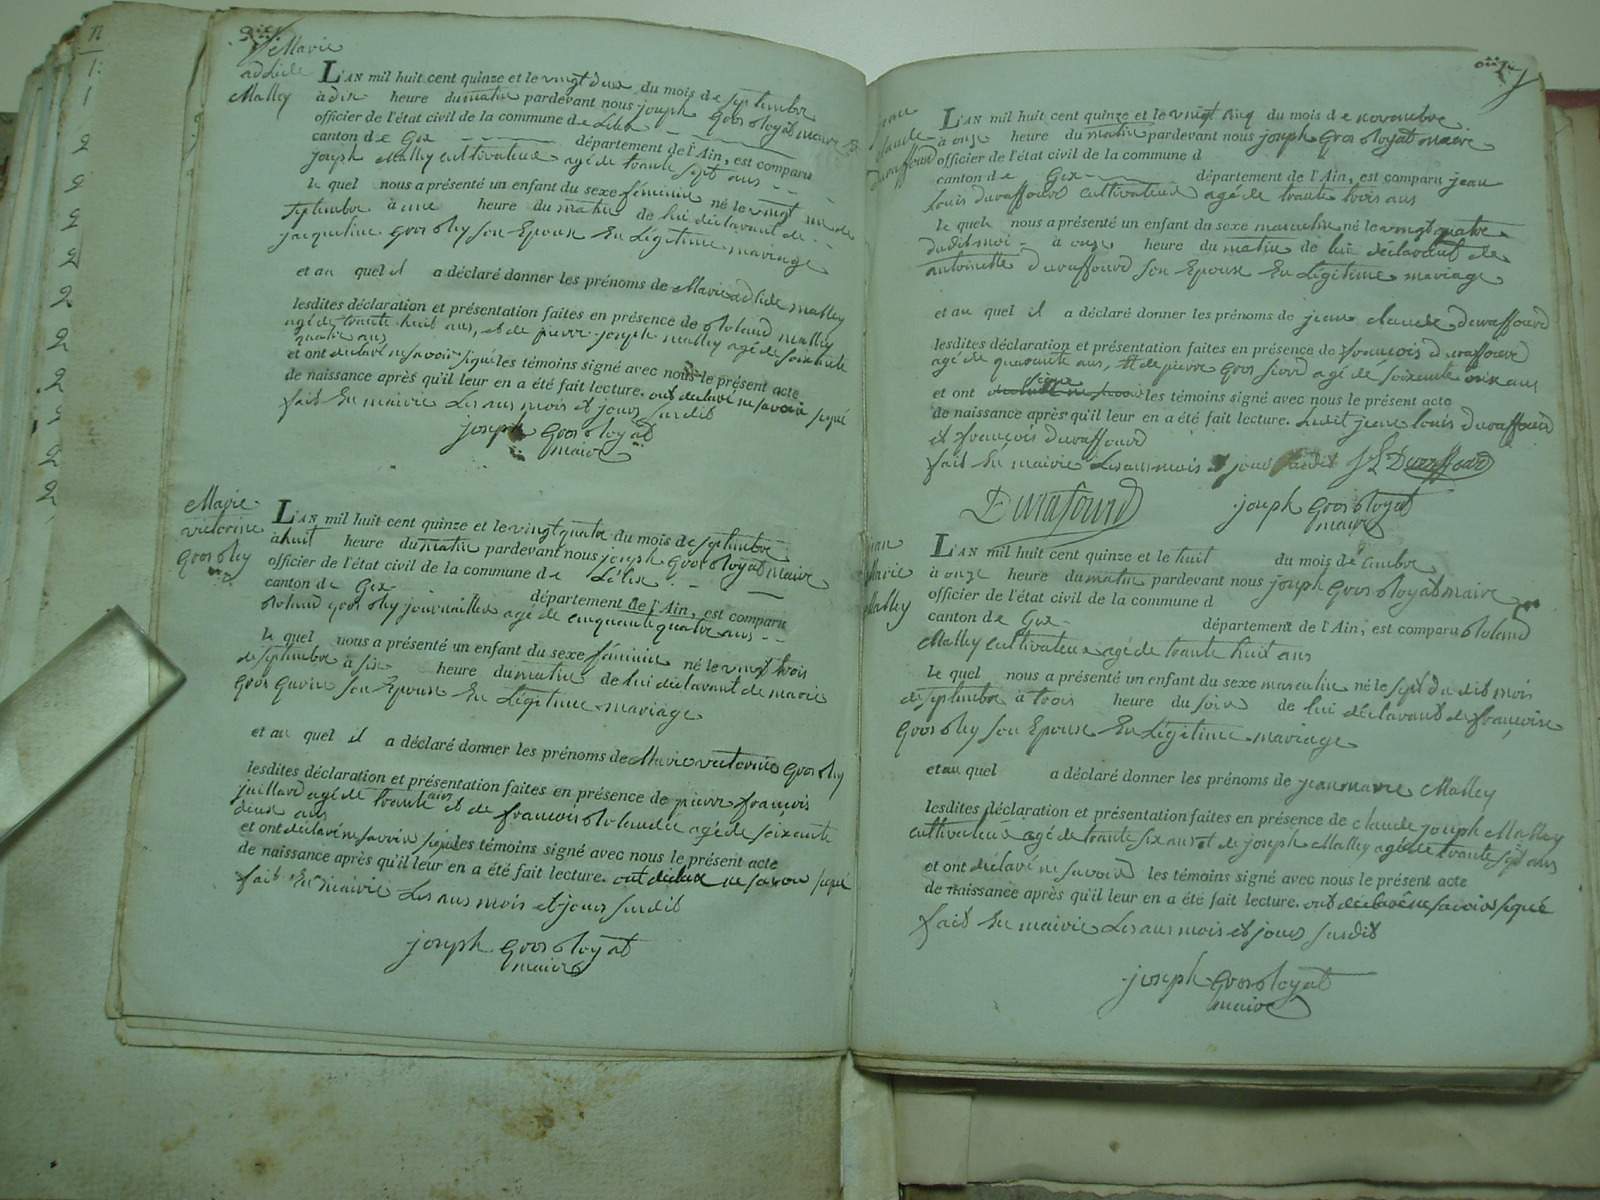 Marie
adelide
Malley
L'AN mil huit cent quinze et le vingt deux du mois de septembre
à dix heure du matin pardevant nous joseph Grosroyat maire
officier de l'état civil de la commune de Lélex
canton de Gex département de l'Ain, est comparu
joseph Malley cultivateur agé de trante sept ans
le quel nous a présenté un enfant du sexe féminin né le vingt un de
septembre à une heure du matin de lui déclarant de
jacqueline Grosbley son Epouse En Légitime mariage
et au quel il a déclaré donner les prénoms de Marie adelide Malley
lesdites déclaration et présentation faites en présence de Roland Malley
agé de trante huit ans, et de pierre joseph Malley agé de soixente
quatre ans
et ont déclaré ne savoir signé les témoins signé avec nous le présent acte
de naissance après qu'il leur en a été fait lecture. ont déclaré ne savoir signé
fait En mairie Les ans mois et jours susdit
joseph Grosroyat
maire
Marie
victorine
Grosbley
L'AN mil huit cent quinze et le vingt quatre du mois de septembre
à huit heure du matin pardevant nous joseph Grosroyat maire
officier de l'état civil de la commune de Lélex
canton de Gex département de l'Ain, est comparu
Roland Grosbley journaillier agé de cinquante quatre ans
le quel nous a présenté un enfant du sexe féminin né le vingt trois
de septembre à six heure du matin de lui déclarant de marie
Gros Gurin son Epouse En Légitime mariage
et au quel il a déclaré donner les prénoms de Marie victorine Grosbley
lesdites déclaration et présentation faites en présence de pierre françois
juillard agé de trante ans et de françois Rolandez agé de soixante
deux ans
et ont déclaré ne savoir signé les témoins signé avec nous le présent acte
de naissance après qu'il leur en a été fait lecture. ont déclaré ne savoir signé
fait En mairie Les ans mois et jours susdit
joseph Grosroyat
maire
jean
claude
Duraffourd
L'AN mil huit cent quinze et le vingt cinq du mois de novembre
à onze heure du matin pardevant nous joseph Grosroyat maire
officier de l'état civil de la commune d
canton de Gex département de l'Ain, est comparu jean
Louis Duraffourd cultivateur agé de trante trois ans
le quel nous a présenté un enfant du sexe masculin né le vingt quatre
dudit moi à onze heure du matin de lui déclarant de
antoinette Duraffourd son Epouse En Légitime mariage
et au quel il a déclaré donner les prénoms de jean claude Duraffourd
lesdites déclaration et présentation faites en présence de françois Duraffourd
agé de quarante ans, et de pierre Gros fiord agé de soixante onze ans
et ont signé les témoins signé avec nous le présent acte
de naissance après qu'il leur en a été fait lecture. Ledit jean Louis Duraffourd
et françois Duraffourd
fait En mairie Les ans mois et jour susdit J L Duraffourd
Durafourd joseph Grosroyat
maire
jean
Marie
Malley
L'AN mil huit cent quinze et le huit du mois de cembre
à onze heure du matin pardevant nous joseph Grosroyat maire
officier de l'état civil de la commune d
canton de Gex département de l'Ain, est comparu Roland
Malley cultivateur agé de trante huit ans
le quel nous a présenté un enfant du sexe masculin né le sept du dit mois
de septembre à trois heure du soir de lui déclarant de françoise
Grosbley son Epouse En Légitime mariage
et au quel a déclaré donner les prénoms de jean marie Malley
lesdites déclaration et présentation faites en présence de claude joseph Malley
cultivateur agé de trante six ans et de joseph Malley agé de trante sept ans
et ont déclaré ne savoir les témoins signé avec nous le présent acte
de naissance après qu'il leur en a été fait lecture. ont déclaré ne savoir signé
fait En mairie Les ans mois et jours susdit
joseph Grosroyat
maire